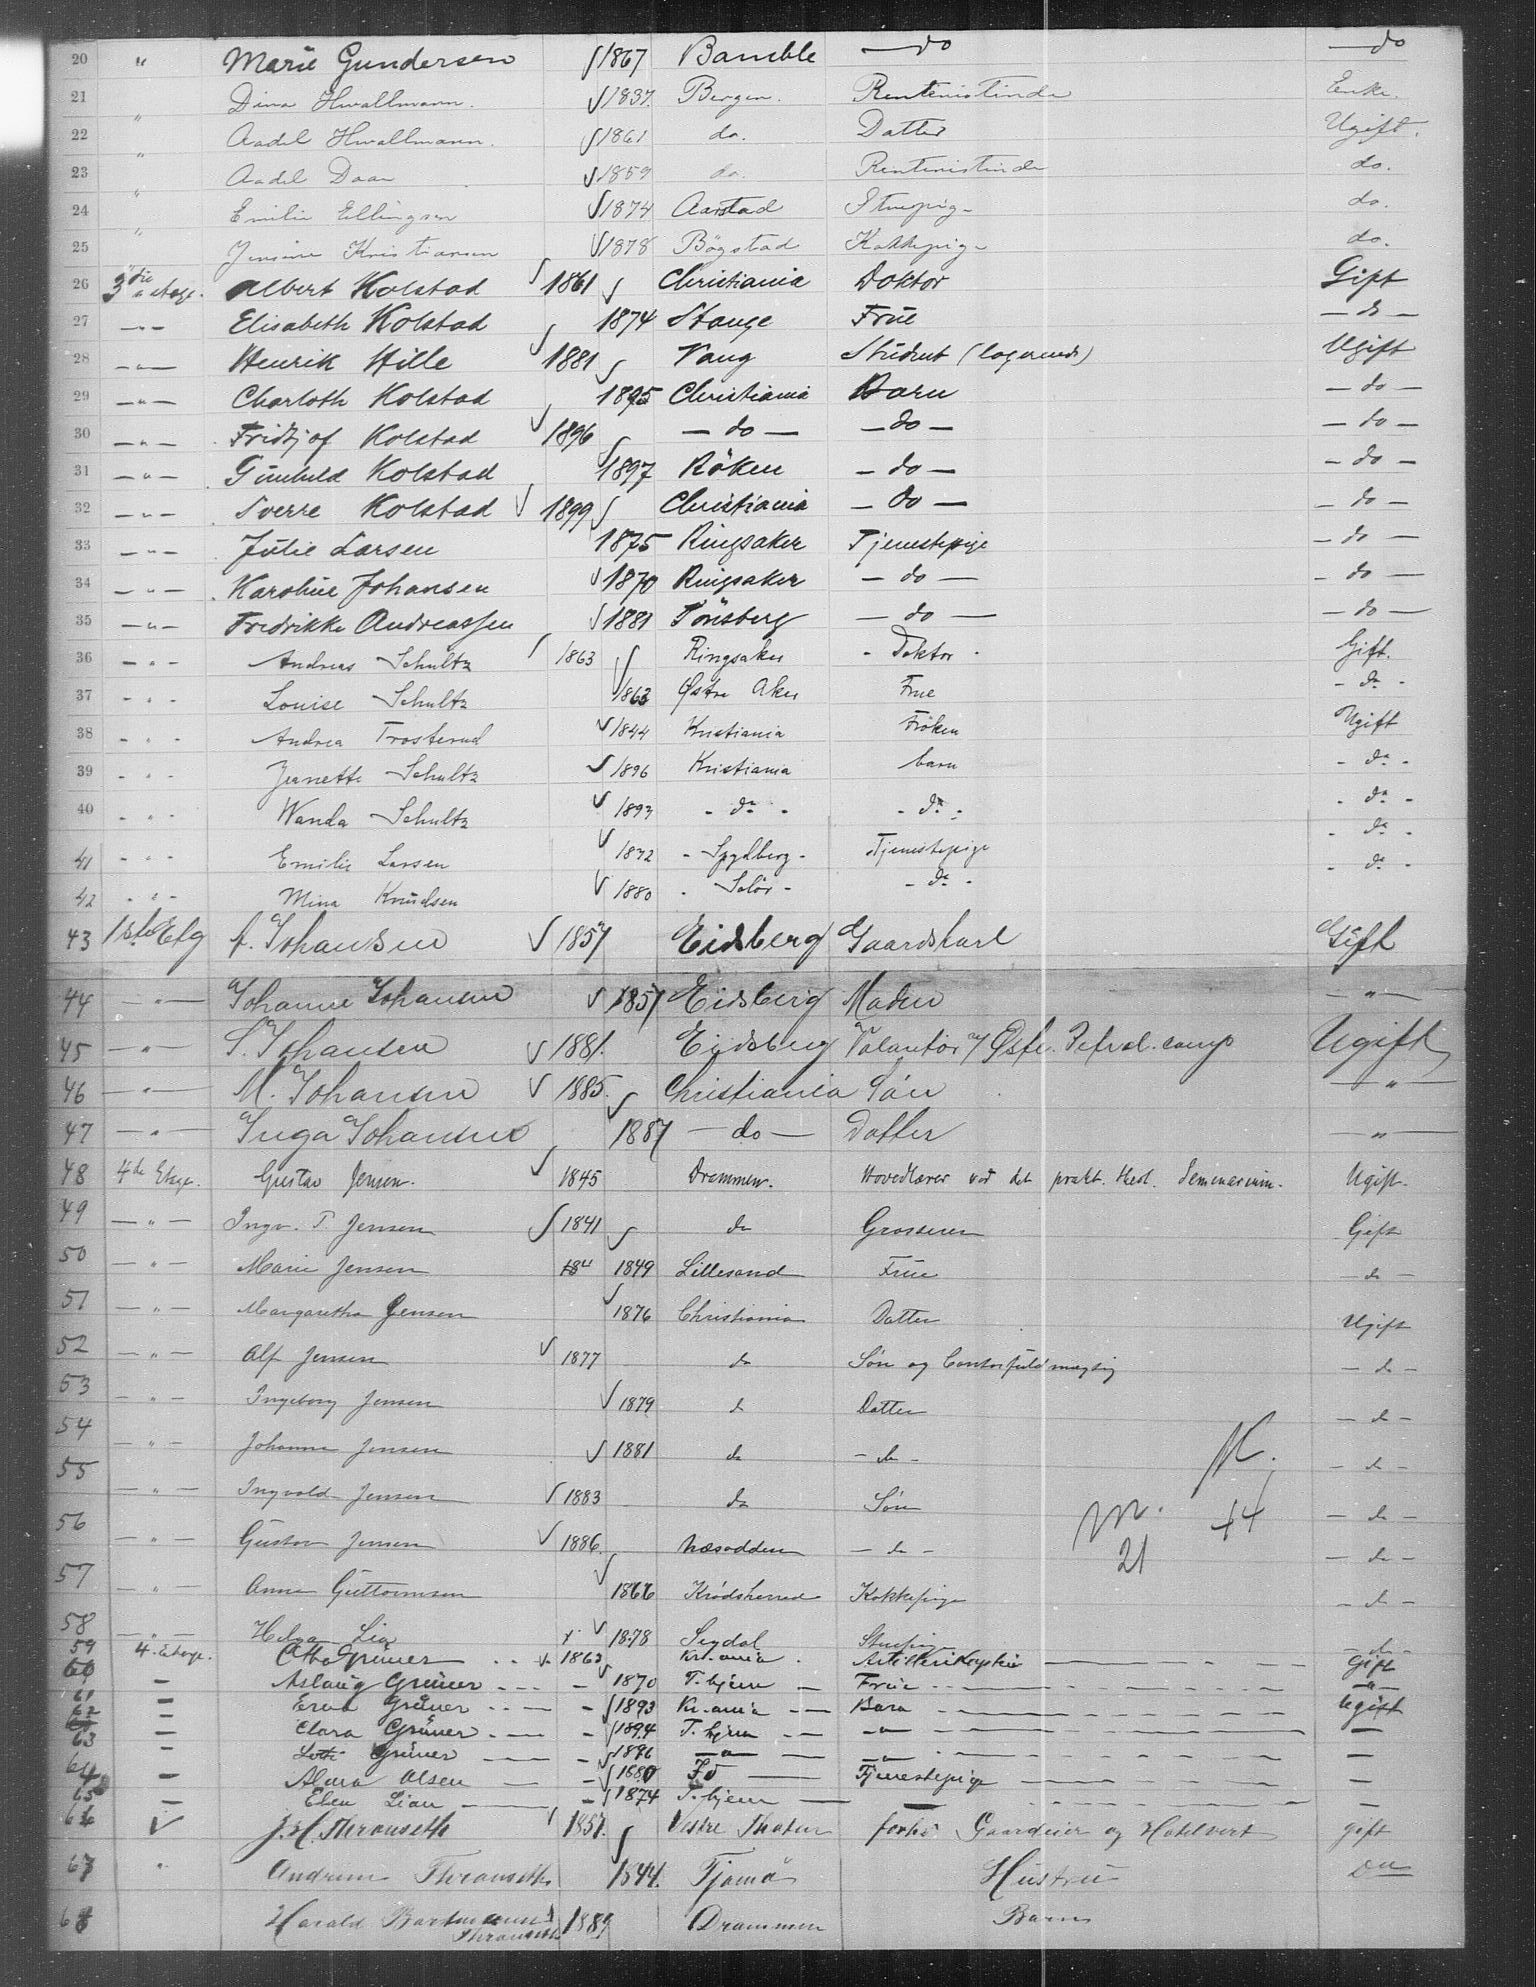 20 " Marie Gundersen 1867 Bamble — do — do
21 " Dina Hwallmann. 1837. Bergen. Rentenistinde Enke.
22 " Aadel Hwallmann. 1861 do. Datter Ugift.
23 " Aadel Daae 1859 do. Rentenistinde do.
24 " Emilie Ellingsen 1874 Aarstad Stuepige do.
25 " Jensine Kristiansen 1878 Bögstad Kokkepige do.
26 3die Etage. Albert Kolstad 1861 Christiania Doktor Gift
27 — " — Elisabeth Kolstad 1874 Stange Frue — do —
28 — " — Henrik Hille 1881 Vang Student (logerende) Ugift
29 — " — Charloth Kolstad 1895 Christiania Barn — do —
30 — " — Fridtjof Kolstad 1896 — do — — do — — do —
31 — " — Gunhild Kolstad 1897 Röken — do — — do —
32 — " — Sverre Kolstad 1899 Christiania — do — — do —
33 — " — Julie Larsen 1875 Ringsaker Tjenestepige — do —
34 — " — Karoline Johansen 1870 Ringsaker — do — — do —
35 — " — Fredrikke Andreassen 1881 Tönsberg — do — — do —
36 - " - Andreas Schultz 1863 Ringsaker - Doktor - Gift.
37 - " - Louise Schultz 1863 Østre Aker Frue - do -
38 - " - Andrea Trosterud 1844 Kristiania Fröken Ugift
39 - " - Jeanette Schultz 1896 Kristiania barn - do -
40 - " - Wanda Schultz 1893 - do - - do - - do -
41 - " - Emilie Larsen 1872 - Spydberg - Tjenestepige - do -
42 - " - Mina Knudsen 1880 - Solör - - do - - do -
43 1ste Etg A. Johansen 1857 Eidsberg Gaardskarl Gift
44 — " — Johanne Johansen 1857 Eidsberg Moder — " —
45 — " — S. Johansen 1881. Eidsberg Volontör Ugift
46 — " — M. Johansen 1885. Christiania Sön — " —
47 — " — Inga Johansen 1887 — do — Datter — " —
48 4de Etage. Gustav Jensen. 1845 Drammen. Hovedlærer ved det prakt. theol. Seminarium. Ugift.
49 — " — Ingv. T. Jensen 1841 do Grosserer Gift
50 — " — Marie Jensen 184 1849 Lillesand Frue — do —
51 — " — Margaretha Jensen 1876 Christiania Datter Ugift
52 — " — Alf Jensen 1877 do Sön og Contorfuldmægtig — do —
53 — " — Ingeborg Jensen 1879 do Datter — do —
54 — " — Johanne Jensen 1881 do — do — — do —
55 — " — Ingvald Jensen 1883 do Sön — do —
K.
m. 44
21
56 — " — Gustav Jensen 1886. Næsodden — do — — do —
57 — " — Anna Guttormsen 1866 Krödsherred Kokkepige — do —
58 — " — Helga Lia 1878 Sigdal Stuepige — do —
59 4. Etage. Otto Grüner 1863 Kr.ania Artillerikaptein Gift
60 — Aslaug Grüner 1870 T.hjem Frue — " —
61 — Erna Grüner 1893 Kr.ania Barn Ugift
62 — Clara Grüner 1894 T.hjem — " — —
63 — Grüner 1896 — " — — " — —
64 — Olsen 1880 Tjenestepige —
65 — Ellen Lian 1874 T.hjem — —
66 J. H. Thranseth 1857. Vestre Thoten forhv. Gaardeier og Hotelvert gift
67 " Thranseth 1844. Tjömö Hustru Do
68 Harald Thranseth 1889 Drammen Barn